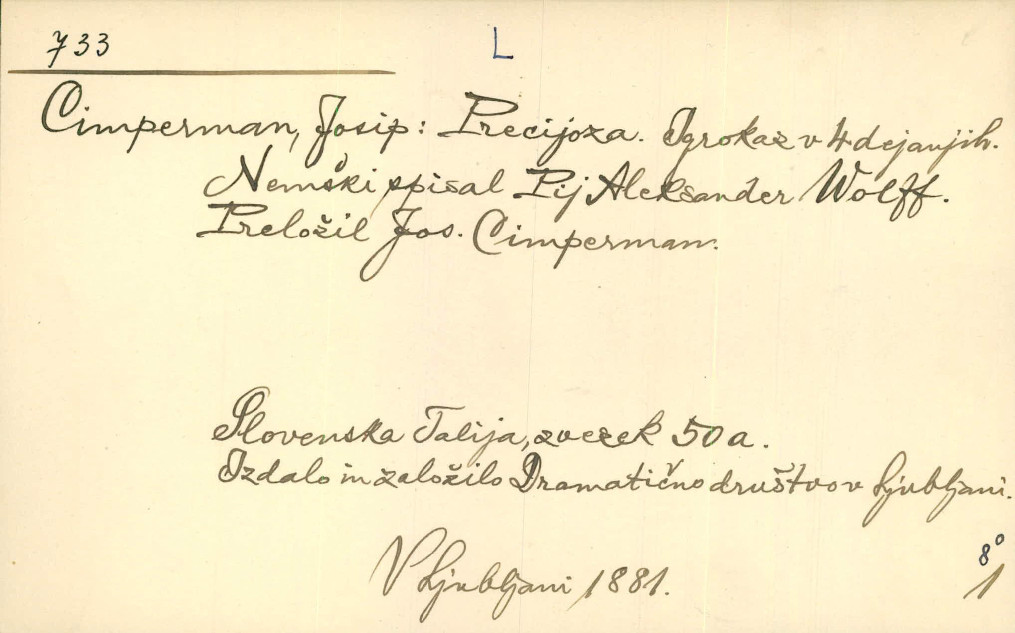 733
L
Cimperman, Josip: Precijoza. Igrokaz v 4 dejanjih.
Nemški spisal Pij Aleksander Wolff.
Preložil Jos. Cimperman.
Slovenska Talija, zvezek 50a.
Izdalo in založilo Dramatično društvo v Ljubljani.
V Ljubljani 1881.
8°
1